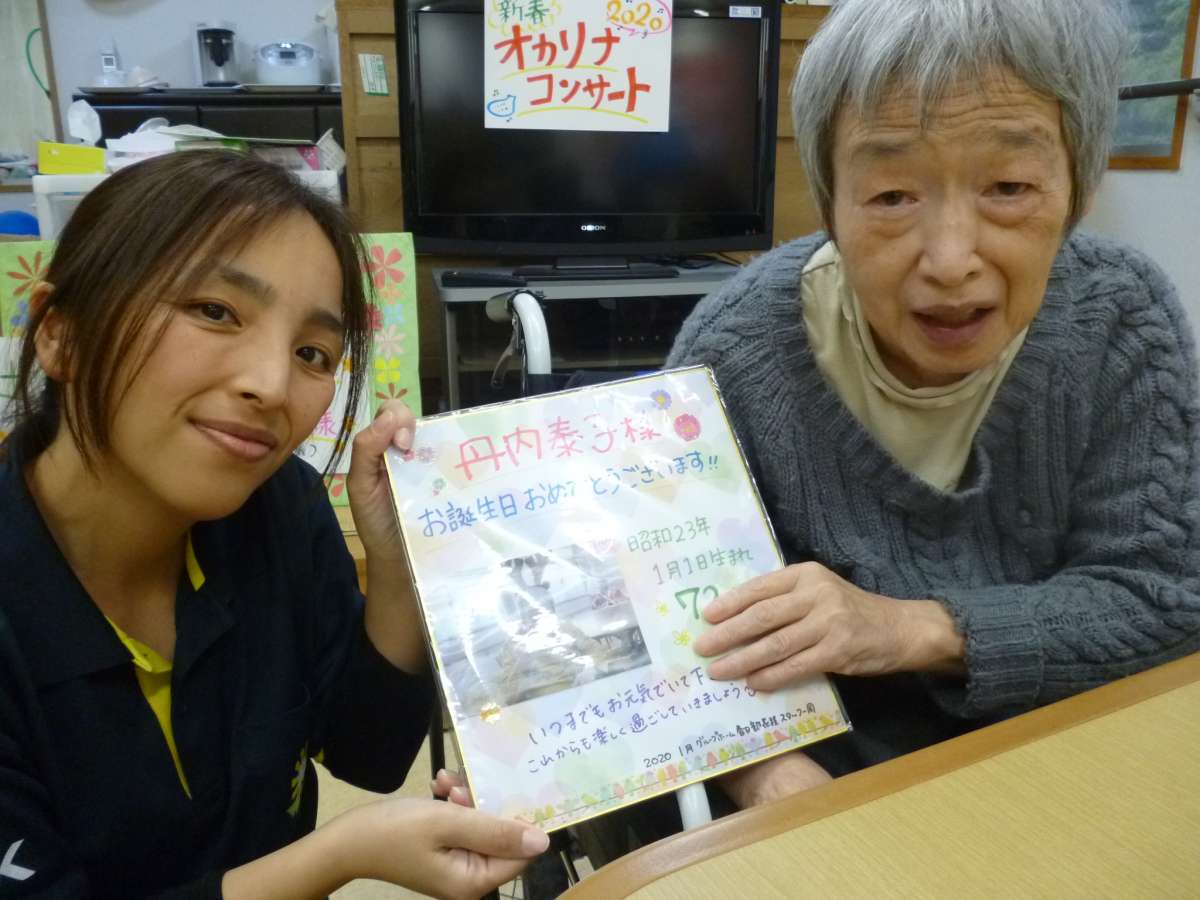 新春
2020
オカリナ
コンサート
ORION
様
丹内泰子様
お誕生日おめでとうございます!!
昭和23年
1月1日生まれ
72
いつまでもお元気でいて下
これからも楽しく過ごしていきましょうね
2020 1月 グループホーム春日部長桂スタッフ一同